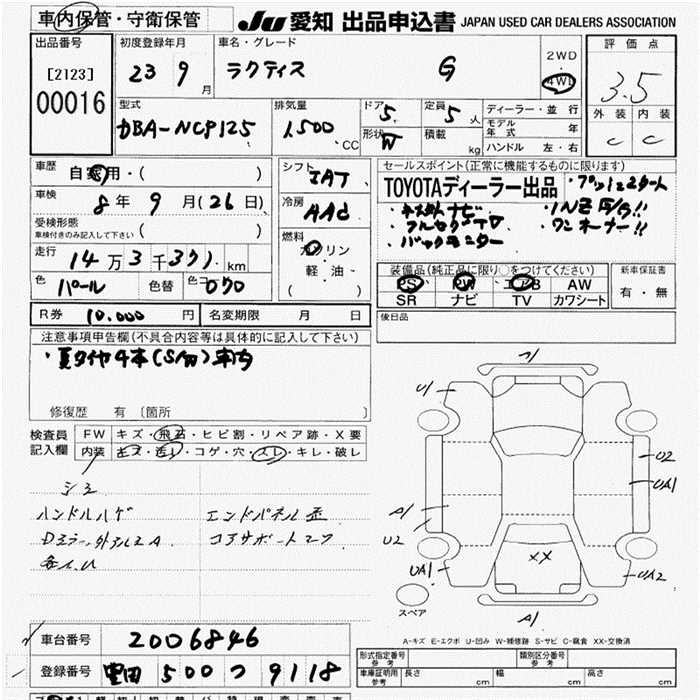 車内保管・守衛保管
JU 愛知 出品申込書 JAPAN USED CAR DEALERS ASSOCIATION
出品番号
[2123]
00016
初度登録年月
23 9月
車名・グレード
ラクティス G
2WD
4WD
評価点
3.5
外装 内装
C C
型式
DBA-NCP125
排気量
1.500 CC
ドア 5
形状 W
定員 5人
積載 kg
ディーラー・並行
モデル年式 年
ハンドル 左・右
車歴
自家用・( )
車検
8年 9月(26日)
受検形態
車検付きのみ記入して下さい ( )
走行
14万3千371km
色 パール 色替 色コード 070
シフト
IAT
冷房
AAC
燃料
ガソリン
軽油・
( )
セールスポイント(正常に機能するものに限ります)
TOYOTAディーラー出品
・プッシュスタート
・ナビ
・フルセグTV
・ワンオーナー!!
・バックモニター
装備品(純正品に限り○をつけてください)
PS PW エアB AW
SR ナビ TV カワシート
新車保証書
有・無
R券 10.000円 名変期限 月 日
後日品
注意事項申告欄(不具合内容等は具体的に記入して下さい)
・夏タイヤ4本(S/W)車内
修復歴 有 〔箇所 〕
検査員記入欄
FW キズ・飛石・ヒビ割・リペア跡・X要
内装 キズ・汚レ・コゲ・穴・スレ・キレ・破レ
シミ
ハンドルハゲ
エンドパネル歪
コアサポート
U1
A1
U2
UA1
U2
UA1
UA2
XX
A1
スペア
A-キズ E-エクボ U-凹み W-補修跡 S-サビ C-腐食 XX-交換済
車台番号 2006846
登録番号 豊田 500 つ 9118
形式指定番号 参考
類別区分番号 参考
車庫証明用 参考
長さ cm 幅 cm 高さ cm